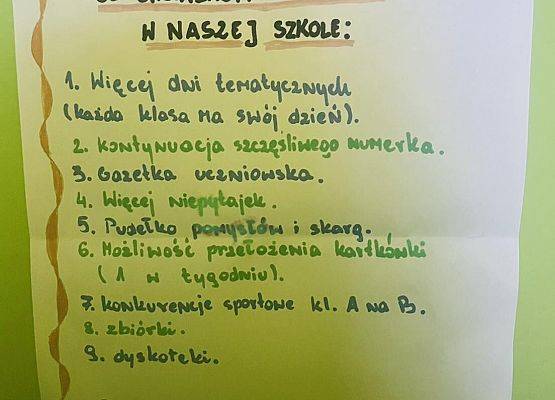 W NASZEJ SZKOLE:
1. Więcej dni tematycznych
(każda klasa ma swój dzień).
2. Kontynuacja szczęśliwego numerka.
3. Gazetka uczniowska.
4. Więcej niepytajek.
5. Pudełko pomysłów i skarg.
6. Możliwość przełożenia kartkówki
(1 w tygodniu).
7. konkurencje sportowe kl. A na B.
8. zbiórki.
9. dyskoteki.